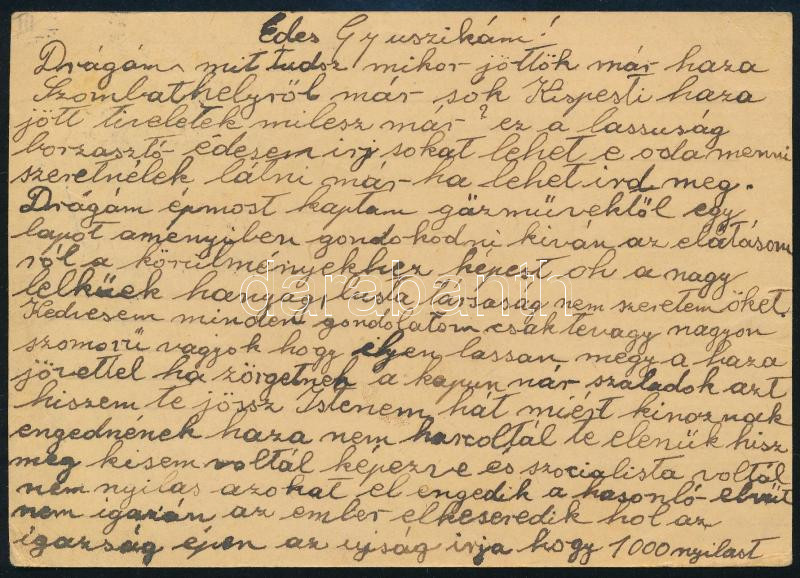 Édes Gyuszikám!
Drágám mit tudsz mikor jöttök már haza
Szombathelyről már sok Kispesti haza
jött tiveletek milesz már? ez a lassuság
borzasztó édesem irj sokat lehet e oda menni
szeretnélek látni már ha lehet ird meg.
Drágám épmost kaptam gázmüvektől egy
lapot amenyiben gondokodni kiván az elátásom
ról a körülményekhez képest oh a nagy
lelküek hanyag, lusta társaság nem szeretem őket.
Kedvesem minden gondolatom csak tevagy nagyon
szomorú vagyok hogy elyen lassan megy a haza
jövettel ha zörgetnek a kapun már szaladok azt
hiszem te jössz Istenem hát miért kinoznak
engednének haza nem harcoltál te elenük hisz
meg kisem voltál képezve és szocialista voltál
nem nyilas azokat el engedik a hasonló elvüt
nem igazán az ember elkeseredik hol az
igazság épen az ujság irja hogy 1000 nyilast
darabanth